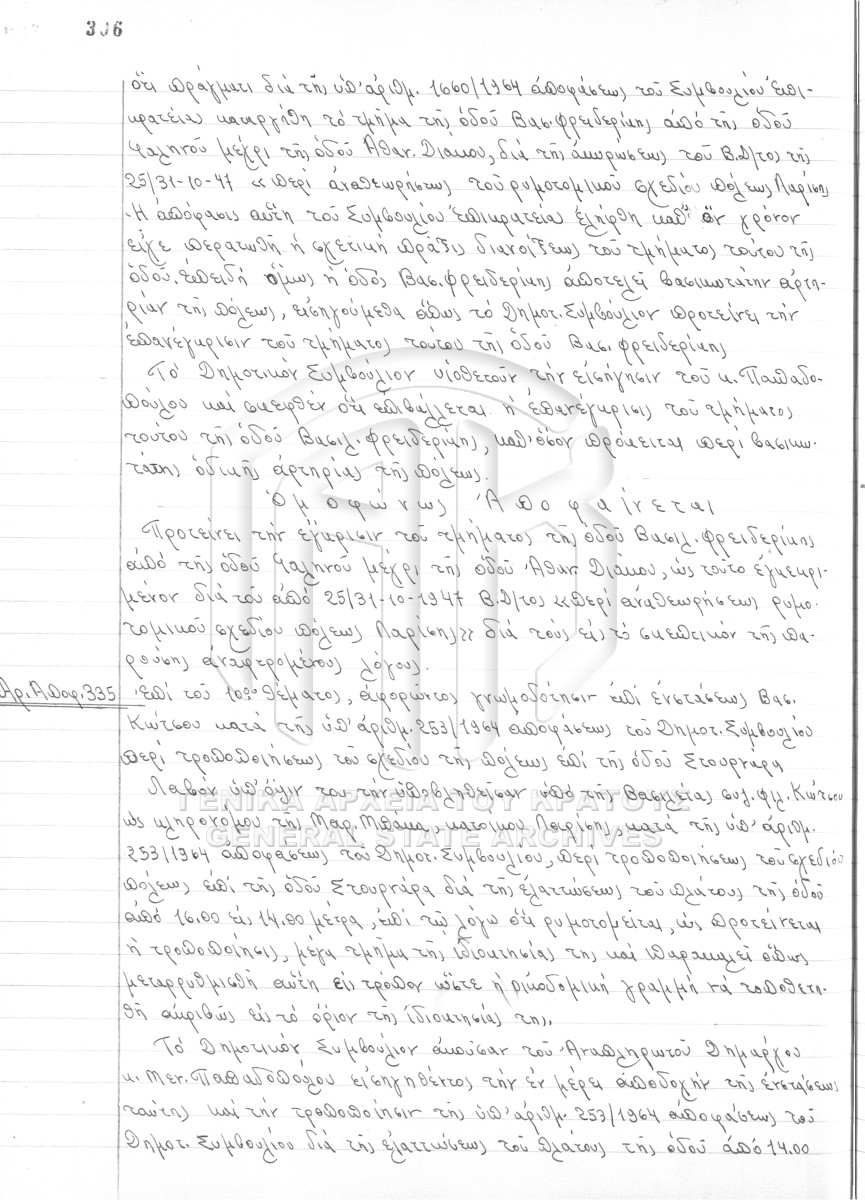 306
ὅτι πράγματι διά τῆς ὑπ' ἀριθμ. 1660/1964 ἀποφάσεως τοῦ Συμβουλίου Ἐπι-
κρατείας καταργήθη τό τμῆμα τῆς ὁδοῦ Βας. Φρειδερίκης ἀπό τῆς ὁδοῦ
Φαληροῦ μέχρι τῆς ὁδοῦ Ἀθαν. Διάκου, διά τῆς ἀκυρώσεως τοῦ Β.Δ/τος τῆς
25/31-10-47 «περί ἀναθεωρήσεως τοῦ ρυμοτομικοῦ σχεδίου πόλεως Λαρίσης
. Η ἀπόφασις αὕτη τοῦ Συμβουλίου Ἐπικρατείας ἐλήφθη καθ' ὅν χρόνον
εἶχε περατωθῆ ἡ σχετική πρᾶξις διανοίξεως τοῦ τμήματος τούτου τῆς
ὁδοῦ. ἐπειδή ὅμως ἡ ὁδός Βας. Φρειδερίκης ἀποτελεῖ βασικωτάτην ἀρτη-
ρίαν τῆς πόλεως, εἰσηγούμεθα ὅπως τό Δημοτ. Συμβούλιον προτείνει τήν
ἐπανέγκρισιν τοῦ τμήματος τούτου τῆς ὁδοῦ Βας. Φρειδερίκης
Τό Δημοτικόν Συμβούλιον υἱοθετοῦν τήν εἰσήγησιν τοῦ κ. Παπαδο-
πούλου καί σκεφθέν ὅτι ἐπιβάλλεται ἡ ἐπανέγκρισις τοῦ τμήματος
τούτου τῆς ὁδοῦ Βασιλ. Φρειδερίκης, καθ' ὅσον πρόκειται περί βασικω-
τάτης ὁδικῆς ἀρτηρίας τῆς πόλεως.
Ὁμοφώνως Ἀποφαίνεται
Προτείνει τήν ἔγκρισιν τοῦ τμήματος τῆς ὁδοῦ Βασιλ. Φρειδερίκης
ἀπό τῆς ὁδοῦ Φαληροῦ μέχρι τῆς ὁδοῦ Ἀθαν Διάκου, ὡς τοῦτο ἐγκεκρι-
μένον διά τοῦ ἀπό 25/31-10-1947 Β.Δ/τος «περί ἀναθεωρήσεως ρυμο-
τομικοῦ σχεδίου πόλεως Λαρίσης» διά τούς εἰς τό σκεπτικόν τῆς πα-
ρούσης ἀναφερομένους λόγους.
Αρ. Αποφ. 335 Ἐπί τοῦ 10ου θέματος, ἀφορῶντος γνωμοδότησιν ἐπί ἐνστάσεως Βας.
Κώτσου κατά τῆς ὑπ' ἀριθμ. 253/1964 ἀποφάσεως τοῦ Δημοτ. Συμβουλίου
περί τροποποιήσεως τοῦ σχεδίου τῆς πόλεως ἐπί τῆς ὁδοῦ Στουρνάρα
Λαβόν ὑπ' ὄψιν του τήν ὑποβληθεῖσαν ὑπό τῆς Βασιλ. συζ. Φιλ. Κώτσου
ὡς κληρονόμου τῆς Μαρ. Μπάκα, κατοίκου Λαρίσης, κατά τῆς ὑπ' ἀριθμ.
ΓΕΝΙΚΑ ΑΡΧΕΙΑ ΤΟΥ ΚΡΑΤΟΥΣ
GENERAL STATE ARCHIVES
253/1964 ἀποφάσεως τοῦ Δημοτ. Συμβουλίου, περί τροποποιήσεως τοῦ σχεδίου
πόλεως ἐπί τῆς ὁδοῦ Στουρνάρα διά τῆς ἐλαττώσεως τοῦ πλάτους τῆς ὁδοῦ
ἀπό 16.00 εἰς 14.00 μέτρα, ἐπί τῷ λόγῳ ὅτι ρυμοτομεῖται, ὡς προτείνεται
ἡ τροποποίησις, μέγα τμῆμα τῆς ἰδιοκτησίας της καί παρακαλεῖ ὅπως
μεταρρυθμισθῆ αὕτη εἰς τρόπον ὥστε ἡ οἰκοδομική γραμμή νά τοποθετη-
θῆ ἀκριβῶς εἰς τό ὅριον τῆς ἰδιοκτησίας της.
Τό Δημοτικόν Συμβούλιον ἀκοῦσαν τοῦ Ἀναπληρωτοῦ Δημάρχου
κ. Μεν. Παπαδοπούλου εἰσηγηθέντος τήν ἐν μέρει ἀποδοχήν τῆς ἐνστάσεως
ταύτης καί τήν τροποποίησιν τῆς ὑπ' ἀριθμ. 253/1964 ἀποφάσεως τοῦ
Δημοτ. Συμβουλίου διά τῆς ἐλαττώσεως τοῦ πλάτους τῆς ὁδοῦ ἀπό 14.00